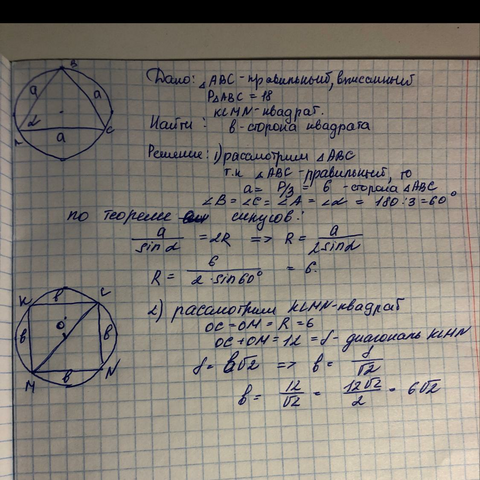 Дано: △ABC - правильный, вписанный
P△ABC = 18
KLMN - квадрат.
Найти: в - сторона квадрата
Решение: 1) рассмотрим △ABC
т.к △ABC - правильный, то
a = P/3 = 6 - сторона △ABC
∠B = ∠C = ∠A = ∠α = 180:3 = 60°
по теореме синусов:
a/sinα = 2R => R = a/2sinα
R = 6/2·sin60° = 6.
B
a a
α
a C
2) рассмотрим KLMN - квадрат
OC = OM = R = 6
OC + OM = 12 = f - диагональ KLMN
f = в√2 => в = f/√2
в = 12/√2 = 12√2/2 = 6√2
K в C
в O в
M в N